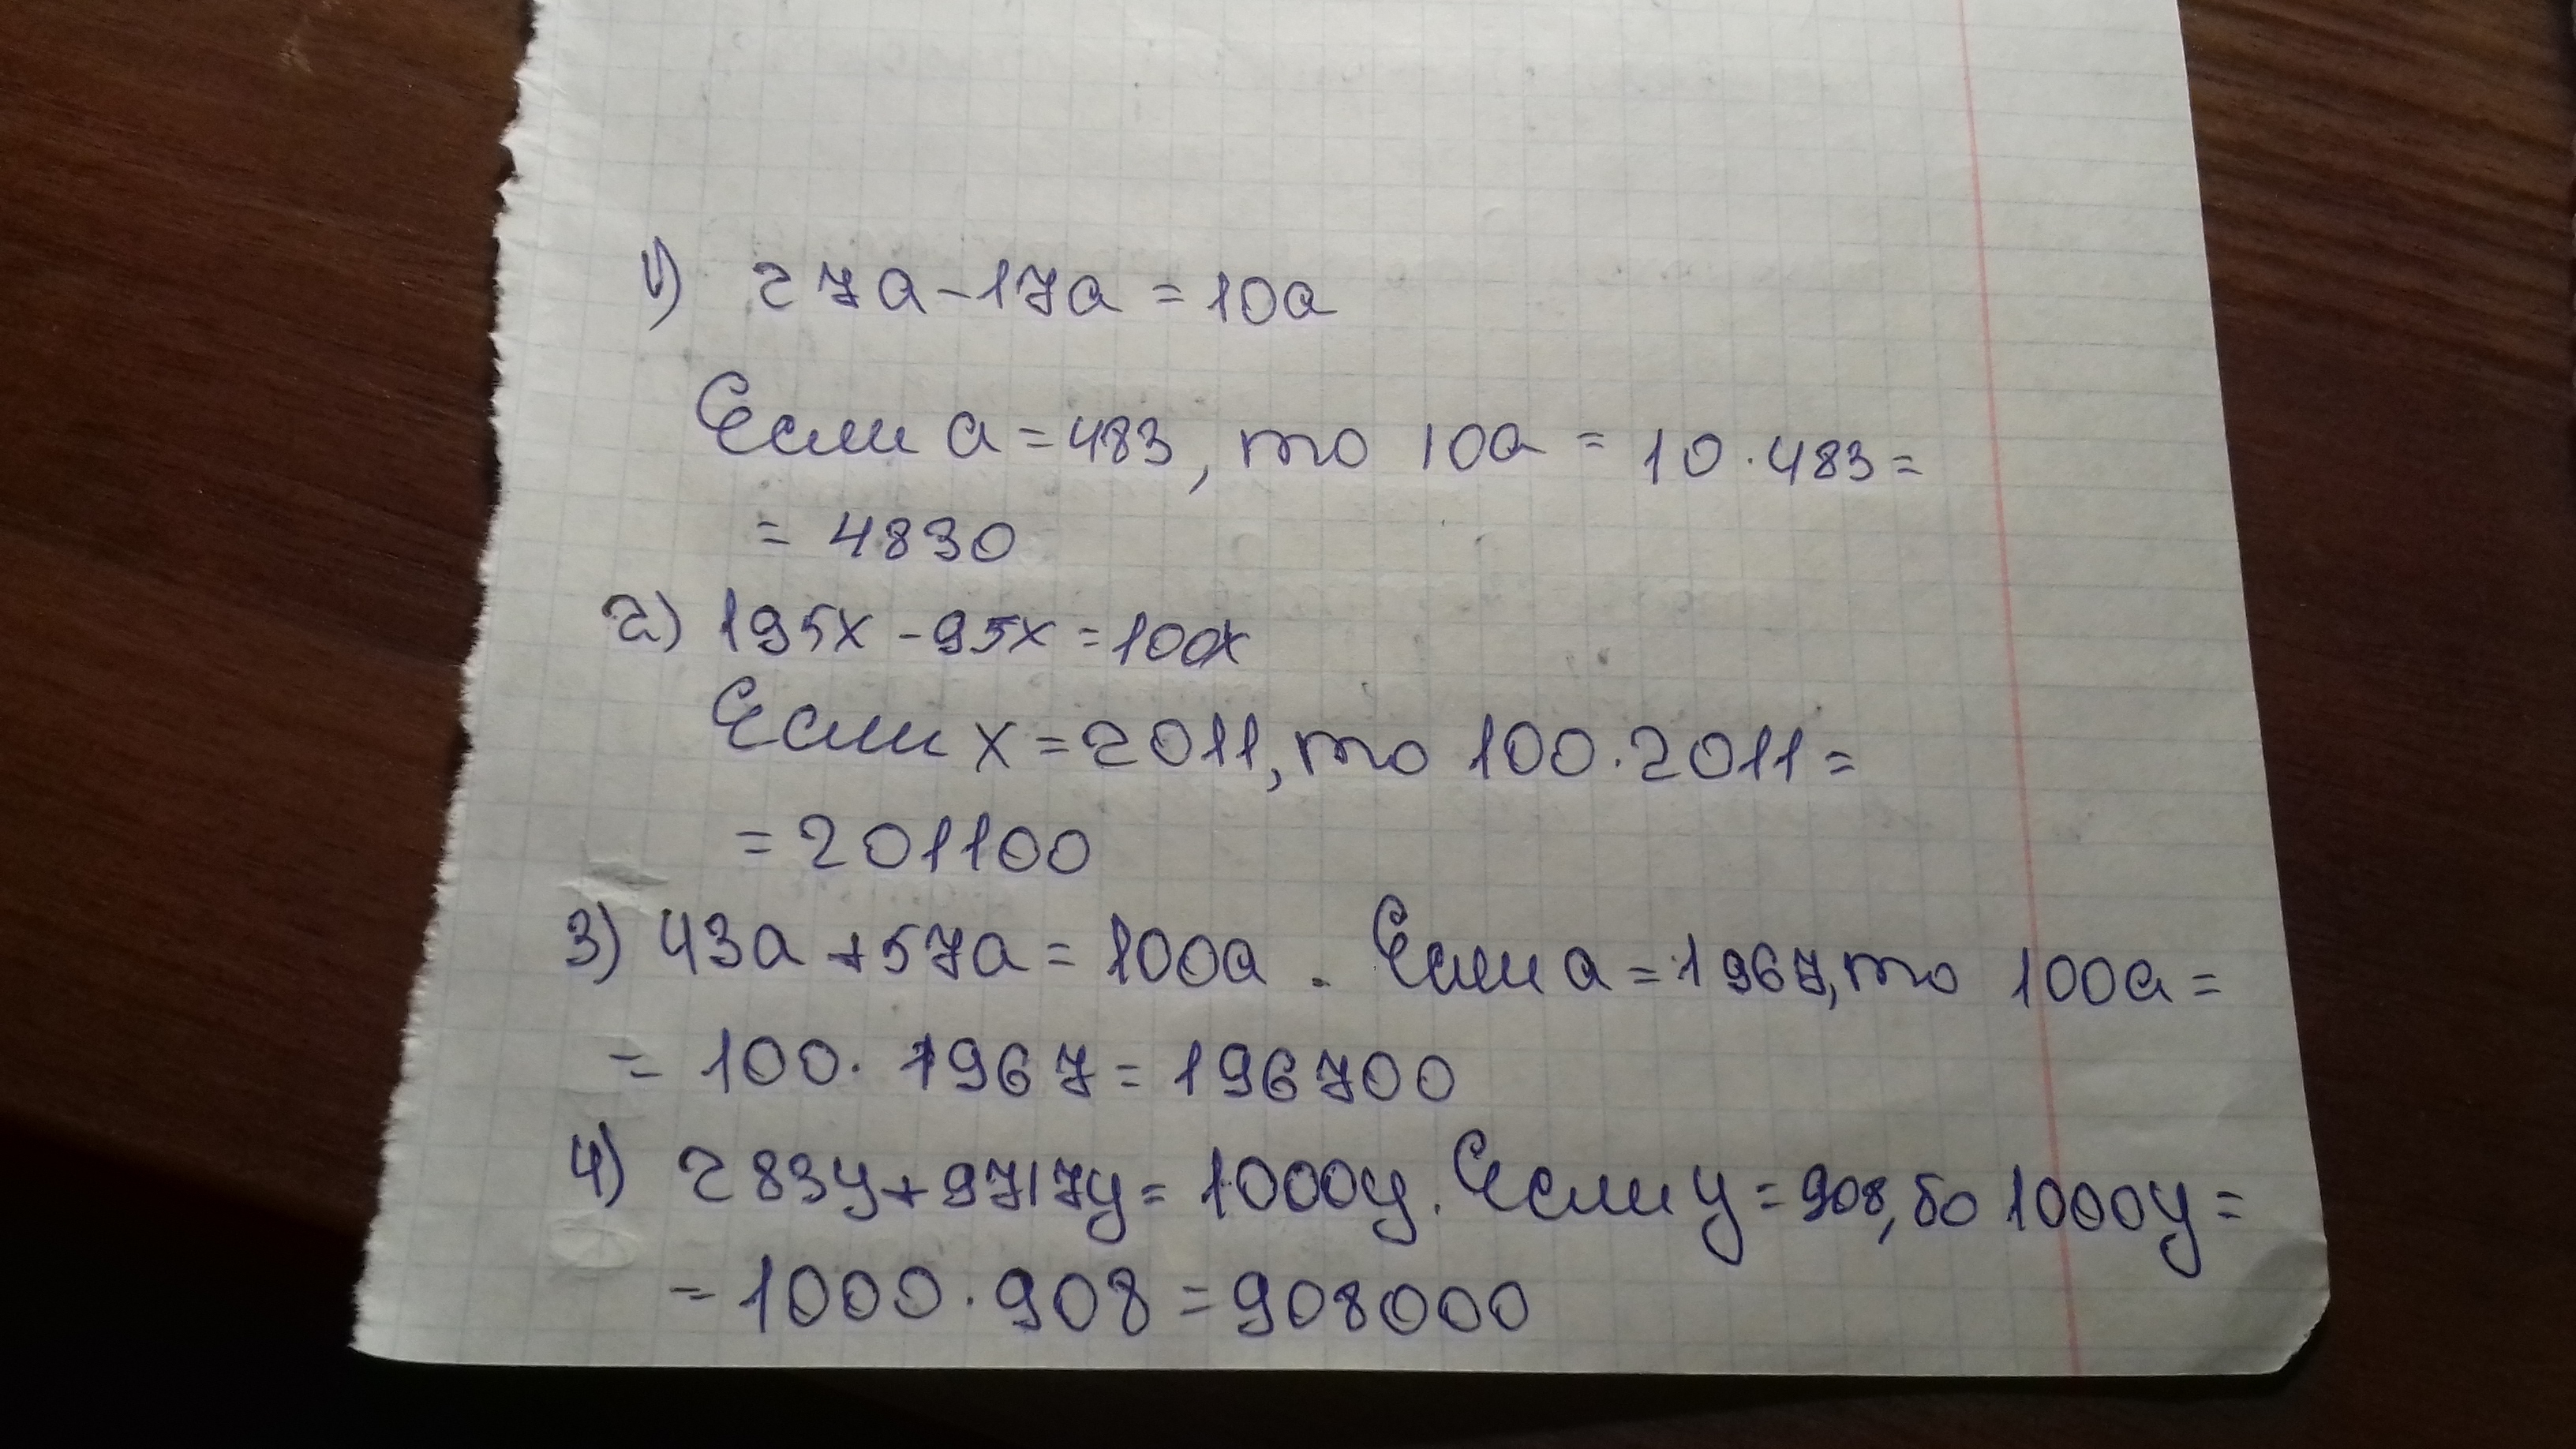 1) 27a - 17a = 10a
Если a = 483, то 10a = 10 · 483 =
= 4830
2) 195x - 95x = 100x
Если x = 2011, то 100 · 2011 =
= 201100
3) 43a + 57a = 100a . Если a = 1967, то 100a =
= 100 · 1967 = 196700
4) 283y + 9717y = 1000y . Если y = 908, то 1000y =
= 1000 · 908 = 908000